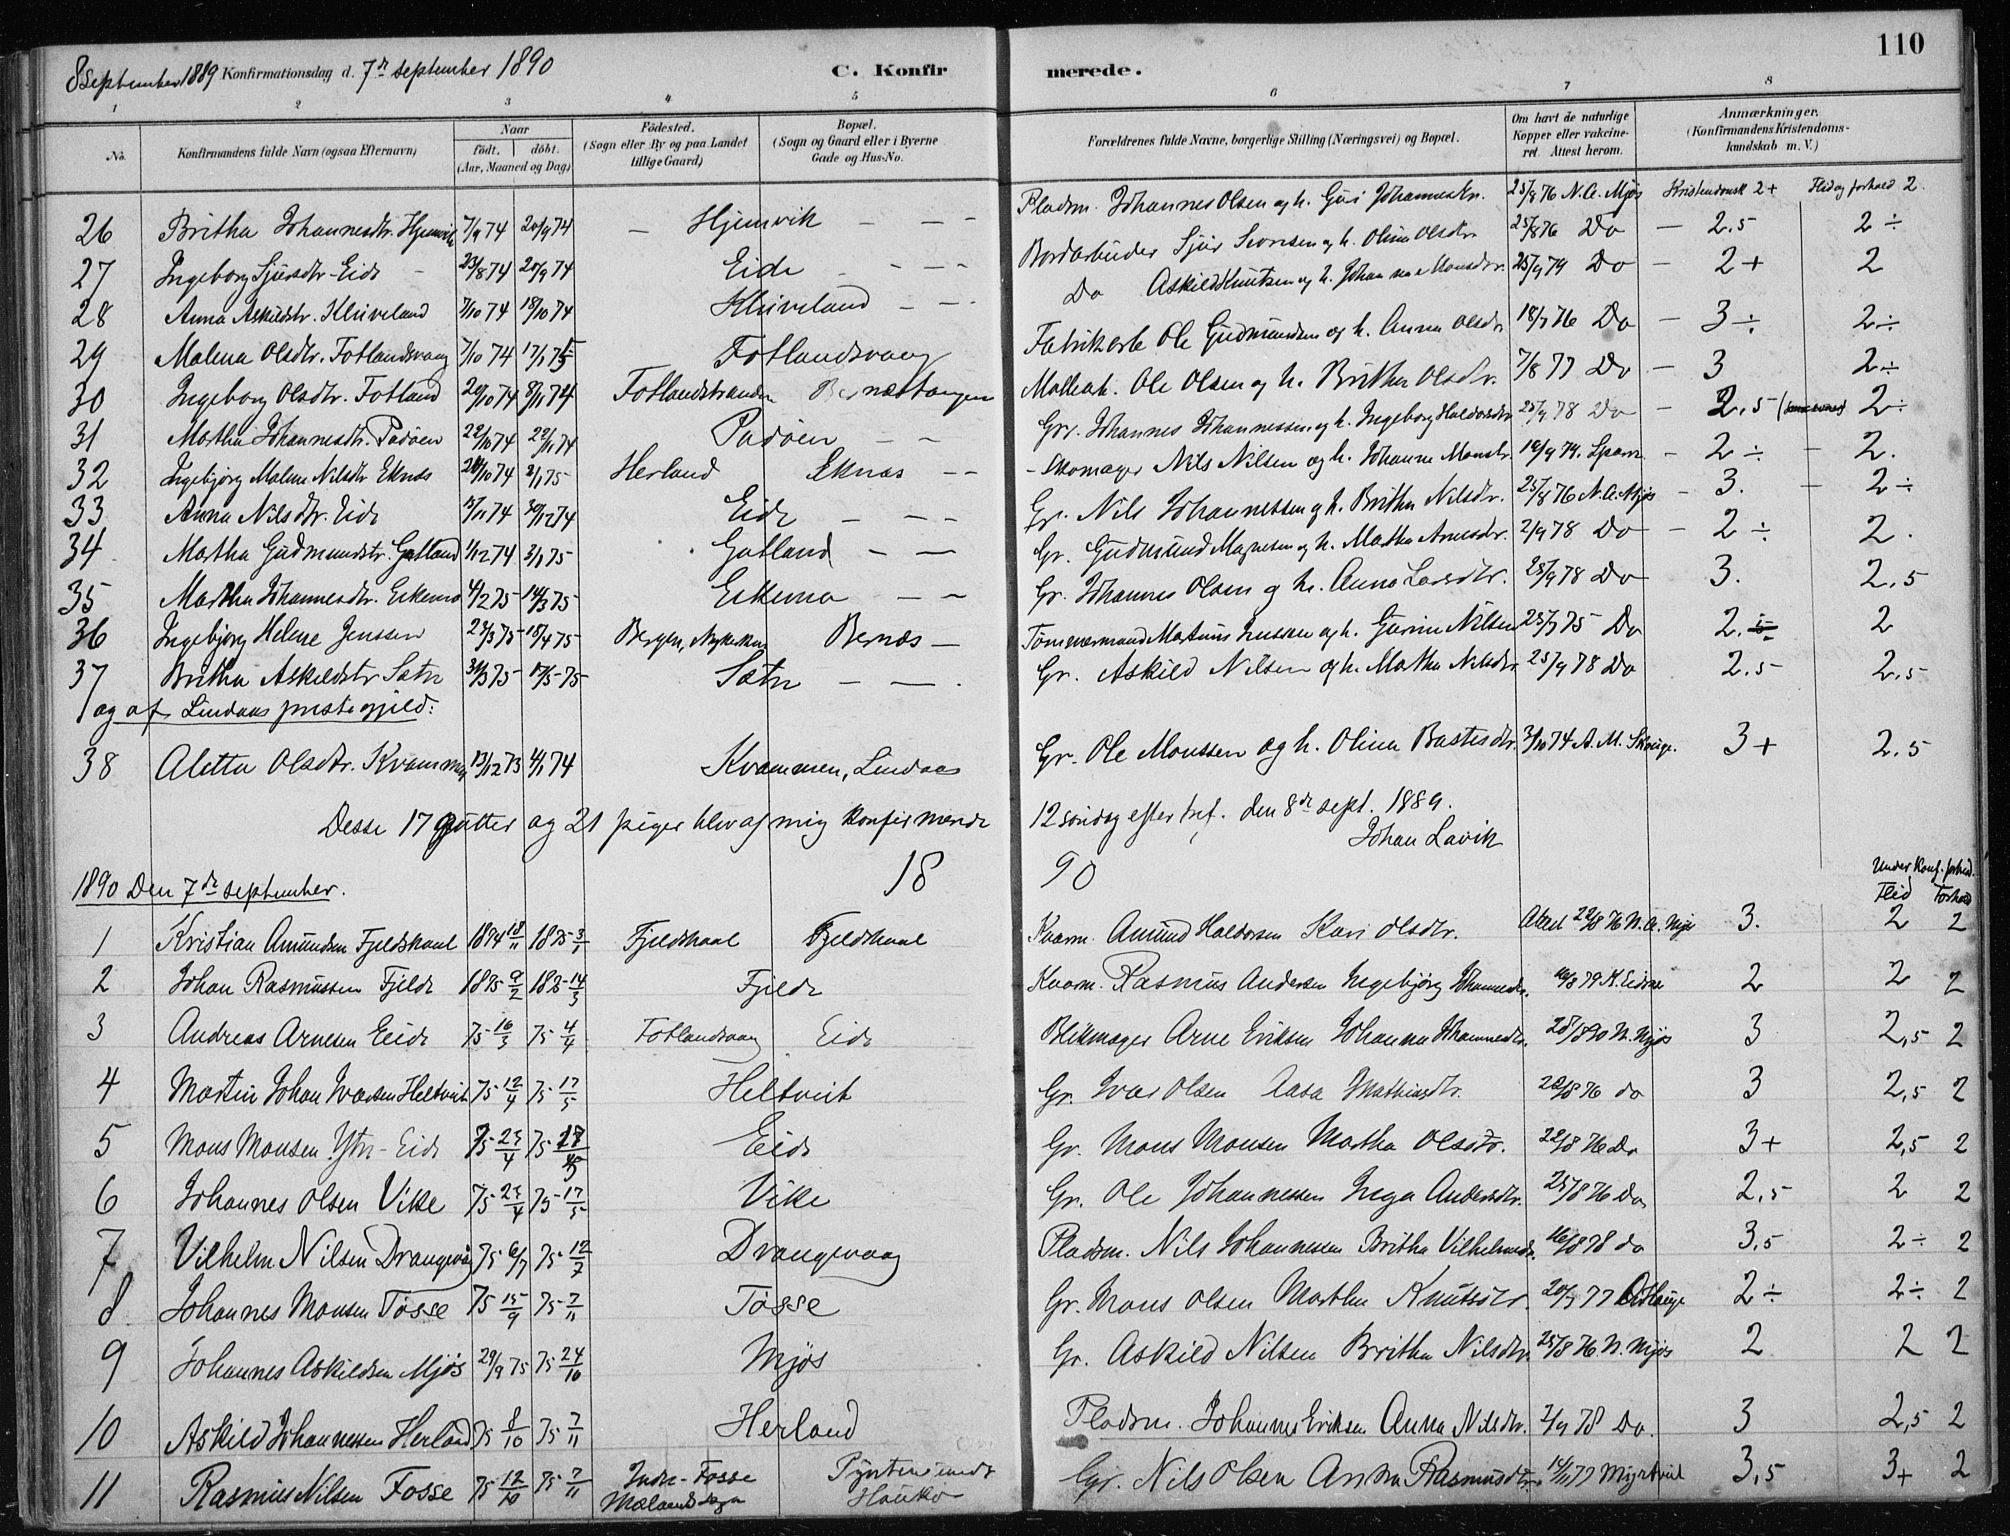 110
8 september 1889 Konfirmationsdag d. 7de september 1890 C. Konfirmerede.
1 2 3 4 5 6 7 8
No. Konfirmandens fulde Navn (ogsaa Efternavn) Naar født. døbt. (Aar, Maaned og Dag) Fødested. (Sogn eller By og paa Landet tillige Gaard) Bopæl. (Sogn og Gaard eller i Byerne Gade og Hus-No. Forældrenes fulde Navne, borgerlige Stilling (Næringsvei) og Bopæl. Om havt de naturlige Kopper eller vakcineret. Attest herom. Anmærkninger. (Konfirmandens Kristendomskundskab m. V.)
26 Britha Johannesdtr. Hjemvik 7/9 74 20/9 74 — Hjemvik — — — Pladsm. Johannes Olsen og h. Guri Johannesdtr. 25/8 76 N. A. Mjøs Kristendomsk 2+ Flid og forhold 2.
27 Ingeborg Sjursdtr. Eide 23/8 74 20/9 74 Eide — — — Bordarbeider Sjur Iversen og h. Olina Olsdtr. 25/8 76 Do — 2.5 2 ÷
28 Anna Askildstr. Kleiveland 7/10 74 18/10 74 Kleiveland — — Do Askild Knutsen og h. Johanna Monsdtr. 25/9 79 Do — 2+ 2
29 Malena Olsdtr. Fotlandsvaag 7/10 74 17/1 75 Fotlandsvaag Fabrikarb. Ole Gudmundsen og h. Anna Olsdtr. 18/7 76 Do — 3 ÷ 2 ÷
30 Ingeborg Olsdtr. Fotland 20/10 74 8/11 74 Fotlandstranden Bernestangen Ole Olsen og h. Britha Olsdtr. 7/8 77 Do — 3 2 ÷
31 Martha Johannesdtr. Padøen 22/10 74 22/11 74 Padøen — — Gr. Johannes Johannessen og h. Ingeborg Haldorsdtr. 25/9 78 Do — 2.5 2 ÷
32 Ingebjørg Malene Nilsdtr Eknæs 24/10 74 2/1 75 Herland Eknæs — — - Skomager Nils Nilsen og h. Johanne Monstr. 19/9 79. — 2 ÷ — 2.
33 Anna Nilsdtr. Eide 15/11 74 30/12 74 Eide — — — Gr. Nils Johannessen og h. Britha Nilsdtr. 25/8 76 N. A. Mjøs — 3. — 2 ÷
34 Martha Gudmundstr. Gotland 1/12 74 3/1 75 Gotland — — Gr. Gudmund Magnesen og h. Martha Arnesdtr. 2/9 78 Do — 2 ÷ 2.
35 Martha Johannesdtr. Eikemo 4/2 75 14/3 75 Eikemo — — Gr. Johannes Olsen og h. Anna Larsdtr. 25/9 78 Do 3. 2.5
36 Ingebjørg Helene Jenssen 23/3 75 18/4 75 Bergen, Nykirken Bernæs — Tømmermand Martinus Jenssen og h. Gurine Nilsen 25/7 75 Do 2. 2
37 Britha Askildstr Sætre 31/3 75 17/5 75 Sætre — — . Gr. Askild Nilsen og h. Martha Nilsdtr. 25/9 78 Do 2.5 2.5
og af Lindaas prestegjeld:
38 Aletta Olsdtr. Kvammen 13/12 73 4/1 74 Kvammen, Lindaas Gr. Ole Monssen og h. Olina Bastesdtr. 3/10 74 A. M. Skauge. 3+ 2.5
Desse 17 gutter og 21 piger blev af mig konfirmerede 12 søndag efter tref. den 8de sept. 1889.
Johan Lavik
1890 Den 7de september. 18 90 Under konf. forbed. Flid Forhold
1 Kristian Amundsen Fjeldskaal 1874 18/11 1875 3/1 Fjeldskaal Fjeldskaal Kaarm. Amund Haldorsen Kari Olsdtr. Attest 22/8 76 N. A. Mjøs 3. 2 2
2 Johan Rasmussen Fjelde 1875 9/2 1875 14/3 Fjelde Kaarm. Rasmus Andersen Ingebjørg Johannesdtr. 10/8 79 K. 2 2 2
3 Andreas Arnesen Eide 75 16/3 75 4/4 Fotlandsvaag Eide Blikmager Arne Eriksen Johanna Johannesdtr. 28/8 90 N. Mjøs 3 2,5 2
4 Martin Johan Ivarsen Heltveit 75 12/4 75 17/5 Heltveit Gr. Ivar Olsen Aasa Mathiasdtr. 22/8 76 do 3 2,5 2
5 Mons Monsen Ytre-Eide 75 25/4 75 17/5 Eide Gr. Mons Monsen Martha Olsdtr. 22/8 76 Do 3+ 2,5 2
6 Johannes Olsen Vike 75 25/4 75 17/5 Vike Gr. Ole Johannessen Inga Andersdtr. 25/8 76 Do 2,5 2 2
7 Vilhelm Nilsen Drangevåg 75 6/7 75 12/7 Drangevaag Pladsm. Nils Johannessen Britha Vilhelmsdtr. 16/8 78 do 3,5 2 ÷ 2
8 Johannes Monsen Tøsse 75 15/9 75 7/11 Tøsse Gr. Mons Olsen Martha Knutsdtr. 20/7 77 2 ÷ 2 ÷ 2
9 Johannes Askildsen Mjøs 29/9 75 75 24/10 Mjøs Gr. Askild Nilsen Britha Nilsdtr. 25/8 76 N. Mjøs 2 2 2
10 Askild Johannessen Herland 75 8/10 75 7/11 Herland Pladsm. Johannes Eriksen Anna Nilsdtr. 2/9 78 Do. 3 2,5 2
11 Rasmus Nilsen Fosse 75 12/10 75 7/11 Indre-Fosse Mælands sogn Hauko Gr. Nils Olsen Anna Rasmusdtr. 14/11 77 Myrtveit 3,5 3+ 2